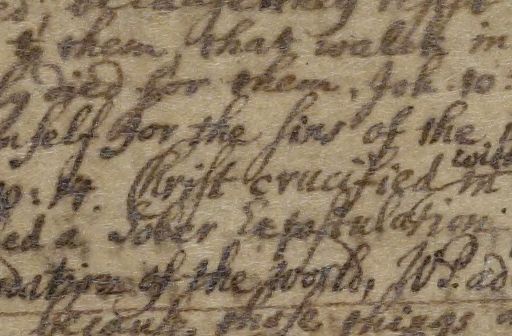 to them, that walk in
died for them, Joh. 10:
mself for the sins of the
with
Christ crucified in
ed a Sober Expostulation.
ndation of the world, W.P. ad
those things